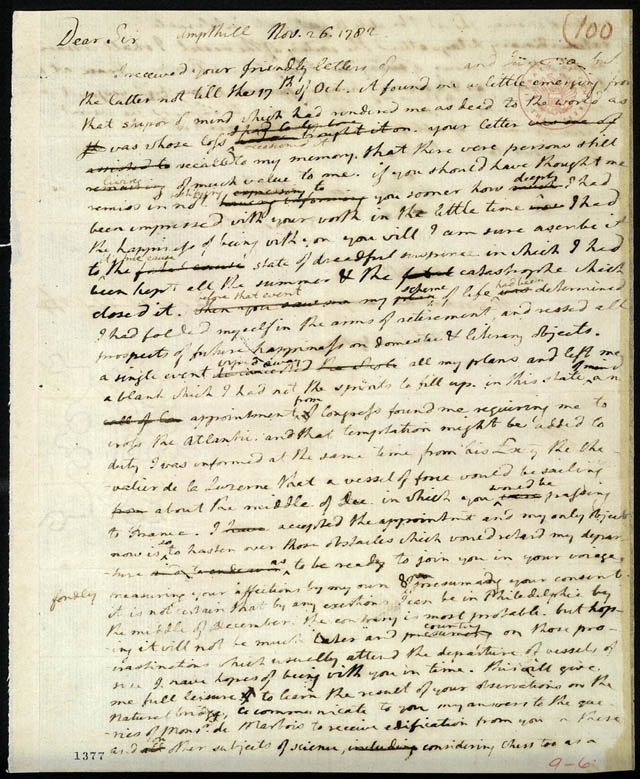 Dear Sir Ampthill Nov. 26. 1782.
100
I received your friendly letters of and
the latter not till the 17th. of Dec. it found me a little emerging from
that stupor of mind which had rendered me as dead to the world as
was whose loss occasioned it. your letter
recalled to my memory, that there were persons still
living of much value to me. if you should have thought me
remiss in not testifying to you sooner how deeply I had
been impressed with your worth in the little time I had
the happiness of being with you you will I am sure ascribe it
to it's true cause the state of dreadful suspence in which I had
been kept all the summer & the catastrophe which
closed it. before that event my scheme of life had been determined
I had folded myself in the arms of retirement, and rested all
prospects of future happiness on domestic & literary objects.
a single event wiped away all my plans and left me
a blank which I had not the spirits to fill up. in this state of mind an
appointment from Congress found me requiring me to
cross the Atlantic. and that temptation might be added to
duty I was informed at the same time from his Exy. the Che-
valier de la Luzerne that a vessel of force would be sailing
from about the middle of Dec. in which you would be passing
to France. I accepted the appointment and my only object
now is so to hasten over those obstacles which would retard my depar-
ture as to be ready to join you in your voiage,
fondly
measuring your affections by my own & presuming your consent.
it is not certain that by any exertions I can be in Philadelphia by
the middle of December. the contrary is most probable. but hop-
ing it will not be much later and counting on those pro-
crastinations which usually attend the departure of vessels of
size I have hopes of being with you in time. this will give
me full leisure to learn the result of your observations on the
Natural bridge, to communicate to you my answers to the que-
ries of Monsr. de Marbois to receive edification from you on these
and other subjects of science, considering chess too as a
1377
9-6